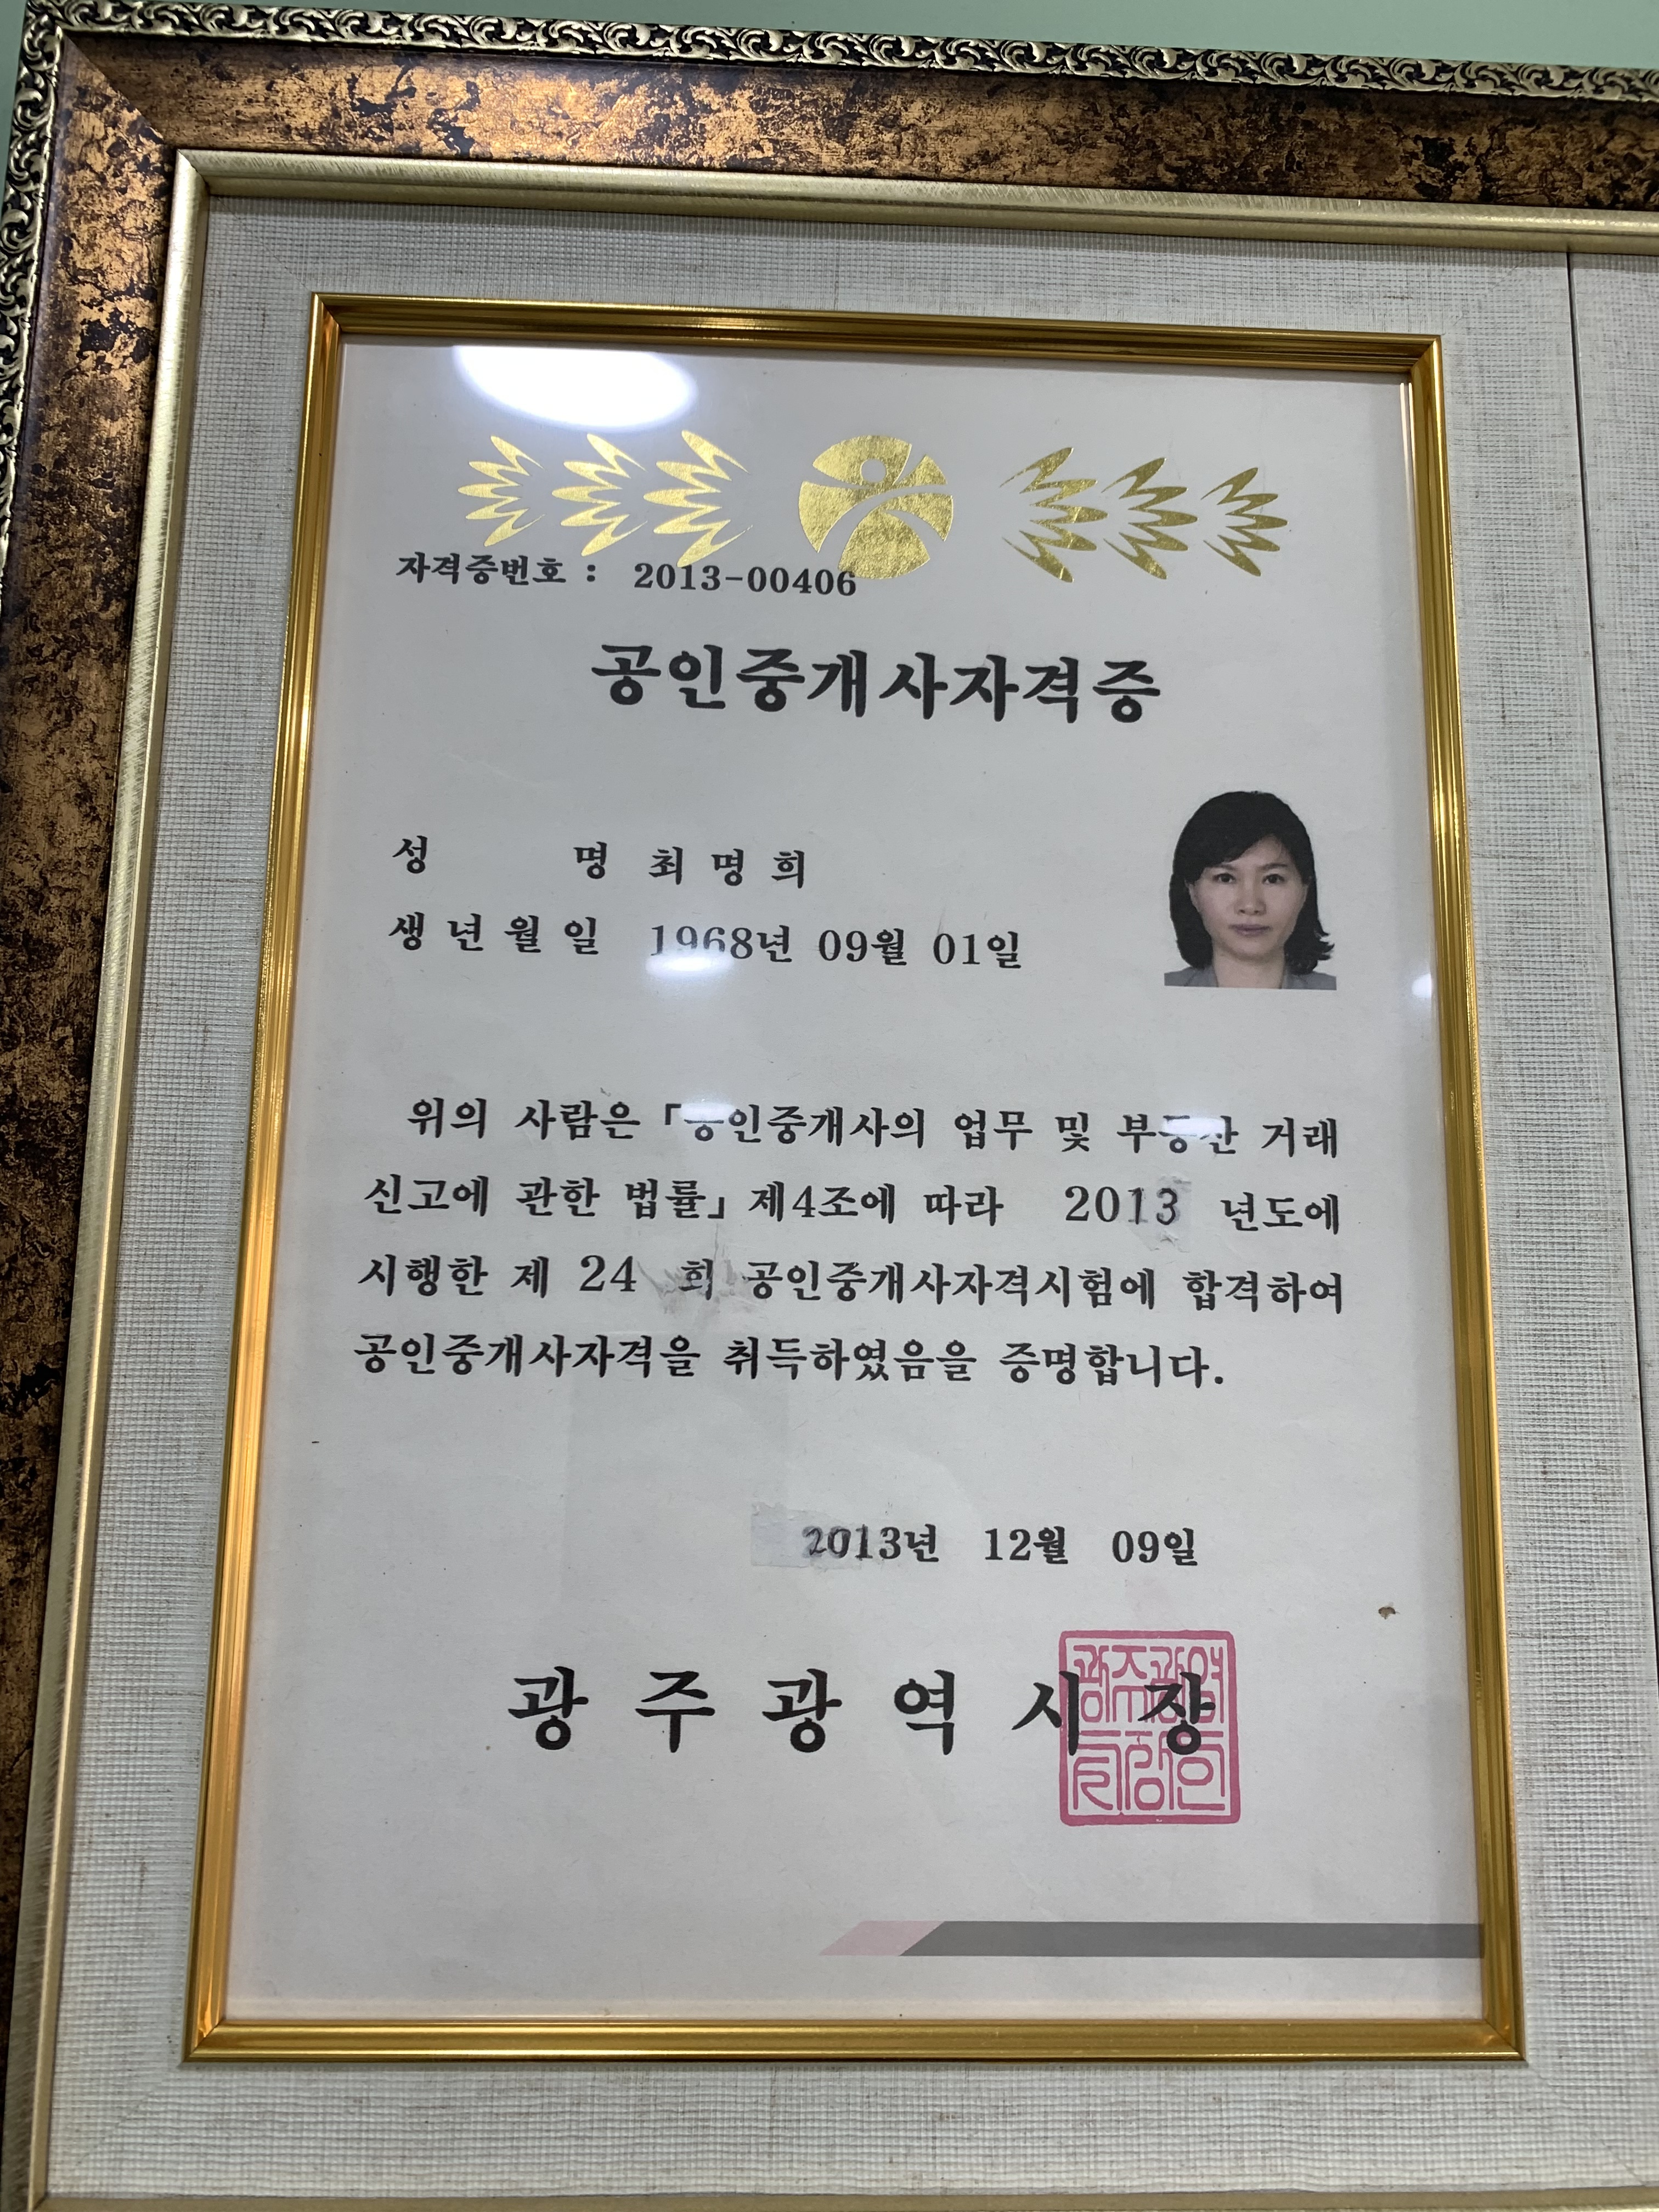 자격증번호 : 2013-00406
공인중개사자격증
성 명 최 명 희
생 년 월 일 1968년 09월 01일
위의 사람은 「공인중개사의 업무 및 부동산 거래
신고에 관한 법률」 제4조에 따라 2013 년도에
시행한 제 24 회 공인중개사자격시험에 합격하여
공인중개사자격을 취득하였음을 증명합니다.
2013년 12월 09일
광 주 광 역 시 장